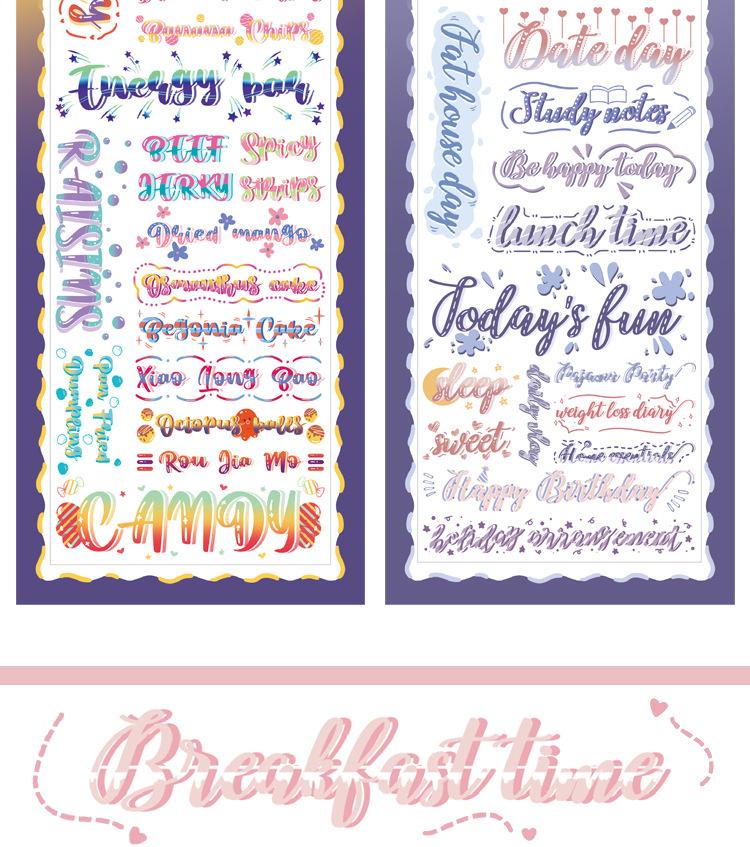 Banana Chips
Energy bar
RAISINS
BEEF JERKY
Spicy strips
Dried mango
Osmanthus cake
Begonia Cake
Pan Fried Dumpling
Xiao Long Bao
Octopus balls
Rou Jia Mo
CANDY
Fat house day
Date day
Study notes
Be happy today
lunch time
Today's fun
sleep
sweet
daily vlog
Pajama Party
weight loss diary
Home essentials
Happy Birthday
holiday arrangement
Breakfast time